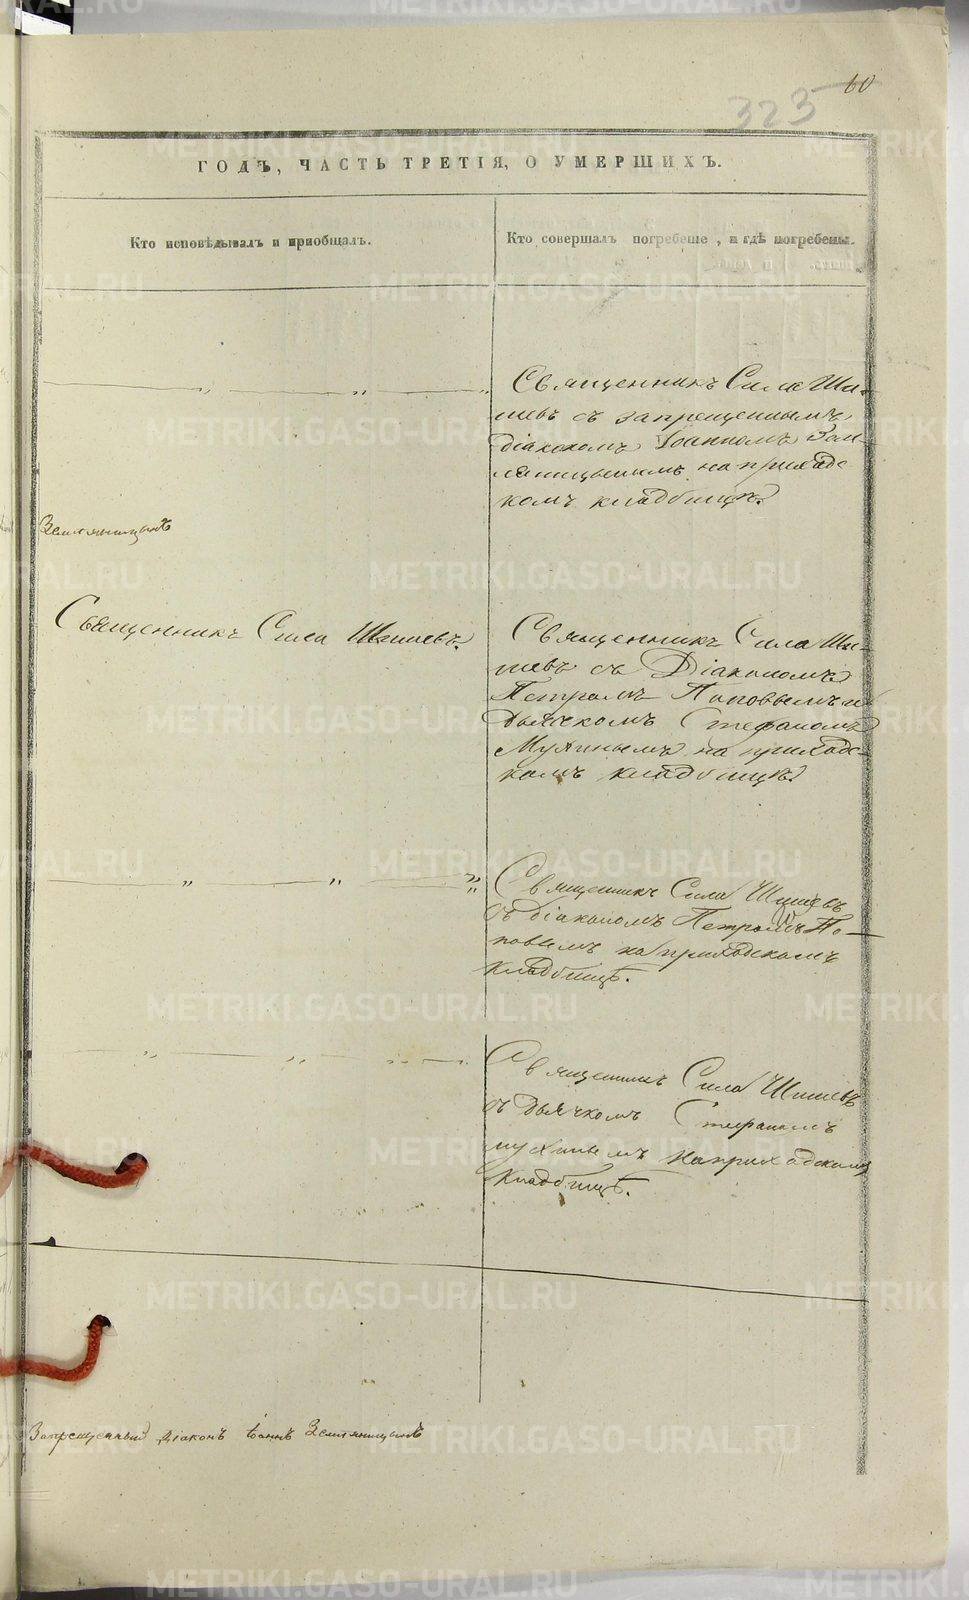 60
323
ГОДЪ, ЧАСТЬ ТРЕТІЯ, О УМЕРШИХЪ.
Кто исповѣдывалъ и приобщалъ.
Кто совершалъ погребеніе, и гдѣ погребены.
Священникъ Сила Ши-
шевъ съ запрещеннымъ
діакономъ Іоанномъ Зем-
ляницынымъ на приходс-
комъ кладбищѣ.
Земляницынъ
Священникъ Сила Шишевъ.
Священникъ Сила Ши-
шевъ съ Діакономъ
Петромъ Поповымъ и
дьячкомъ Стефаномъ
Мухинымъ на приходс-
комъ кладбищѣ.
Священникъ Сила Шишевъ
съ діакономъ Петромъ По-
повымъ на приходскомъ
кладбищѣ.
Священникъ Сила Шишевъ
съ дьячкомъ Стефаномъ
мухинымъ на приходскомъ
кладбищѣ.
Запрещенный діаконъ Іоаннъ Земляницынъ
METRIKI.GASO-URAL.RU